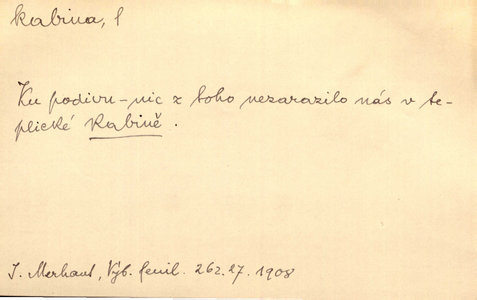 kabina, f
Ku podivu – nic z toho nezarazilo nás v te-
plické kabině.
J. Merhaut, Výb. feuil. 262.27. 1908